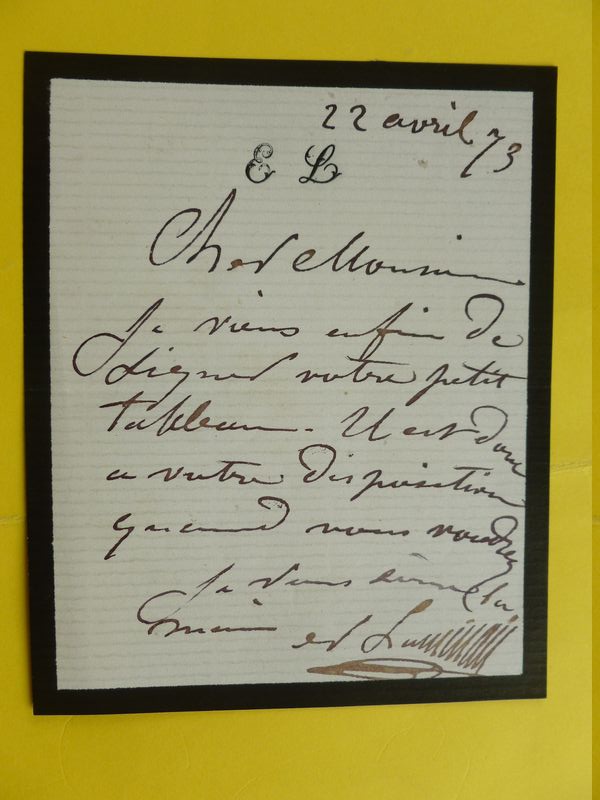 22 avril 73
E L
Cher Monsieur
Je viens enfin de
signer votre petit
tableau. Il est donc
a votre disposition
quand vous voudrez
Je vous serre la
main